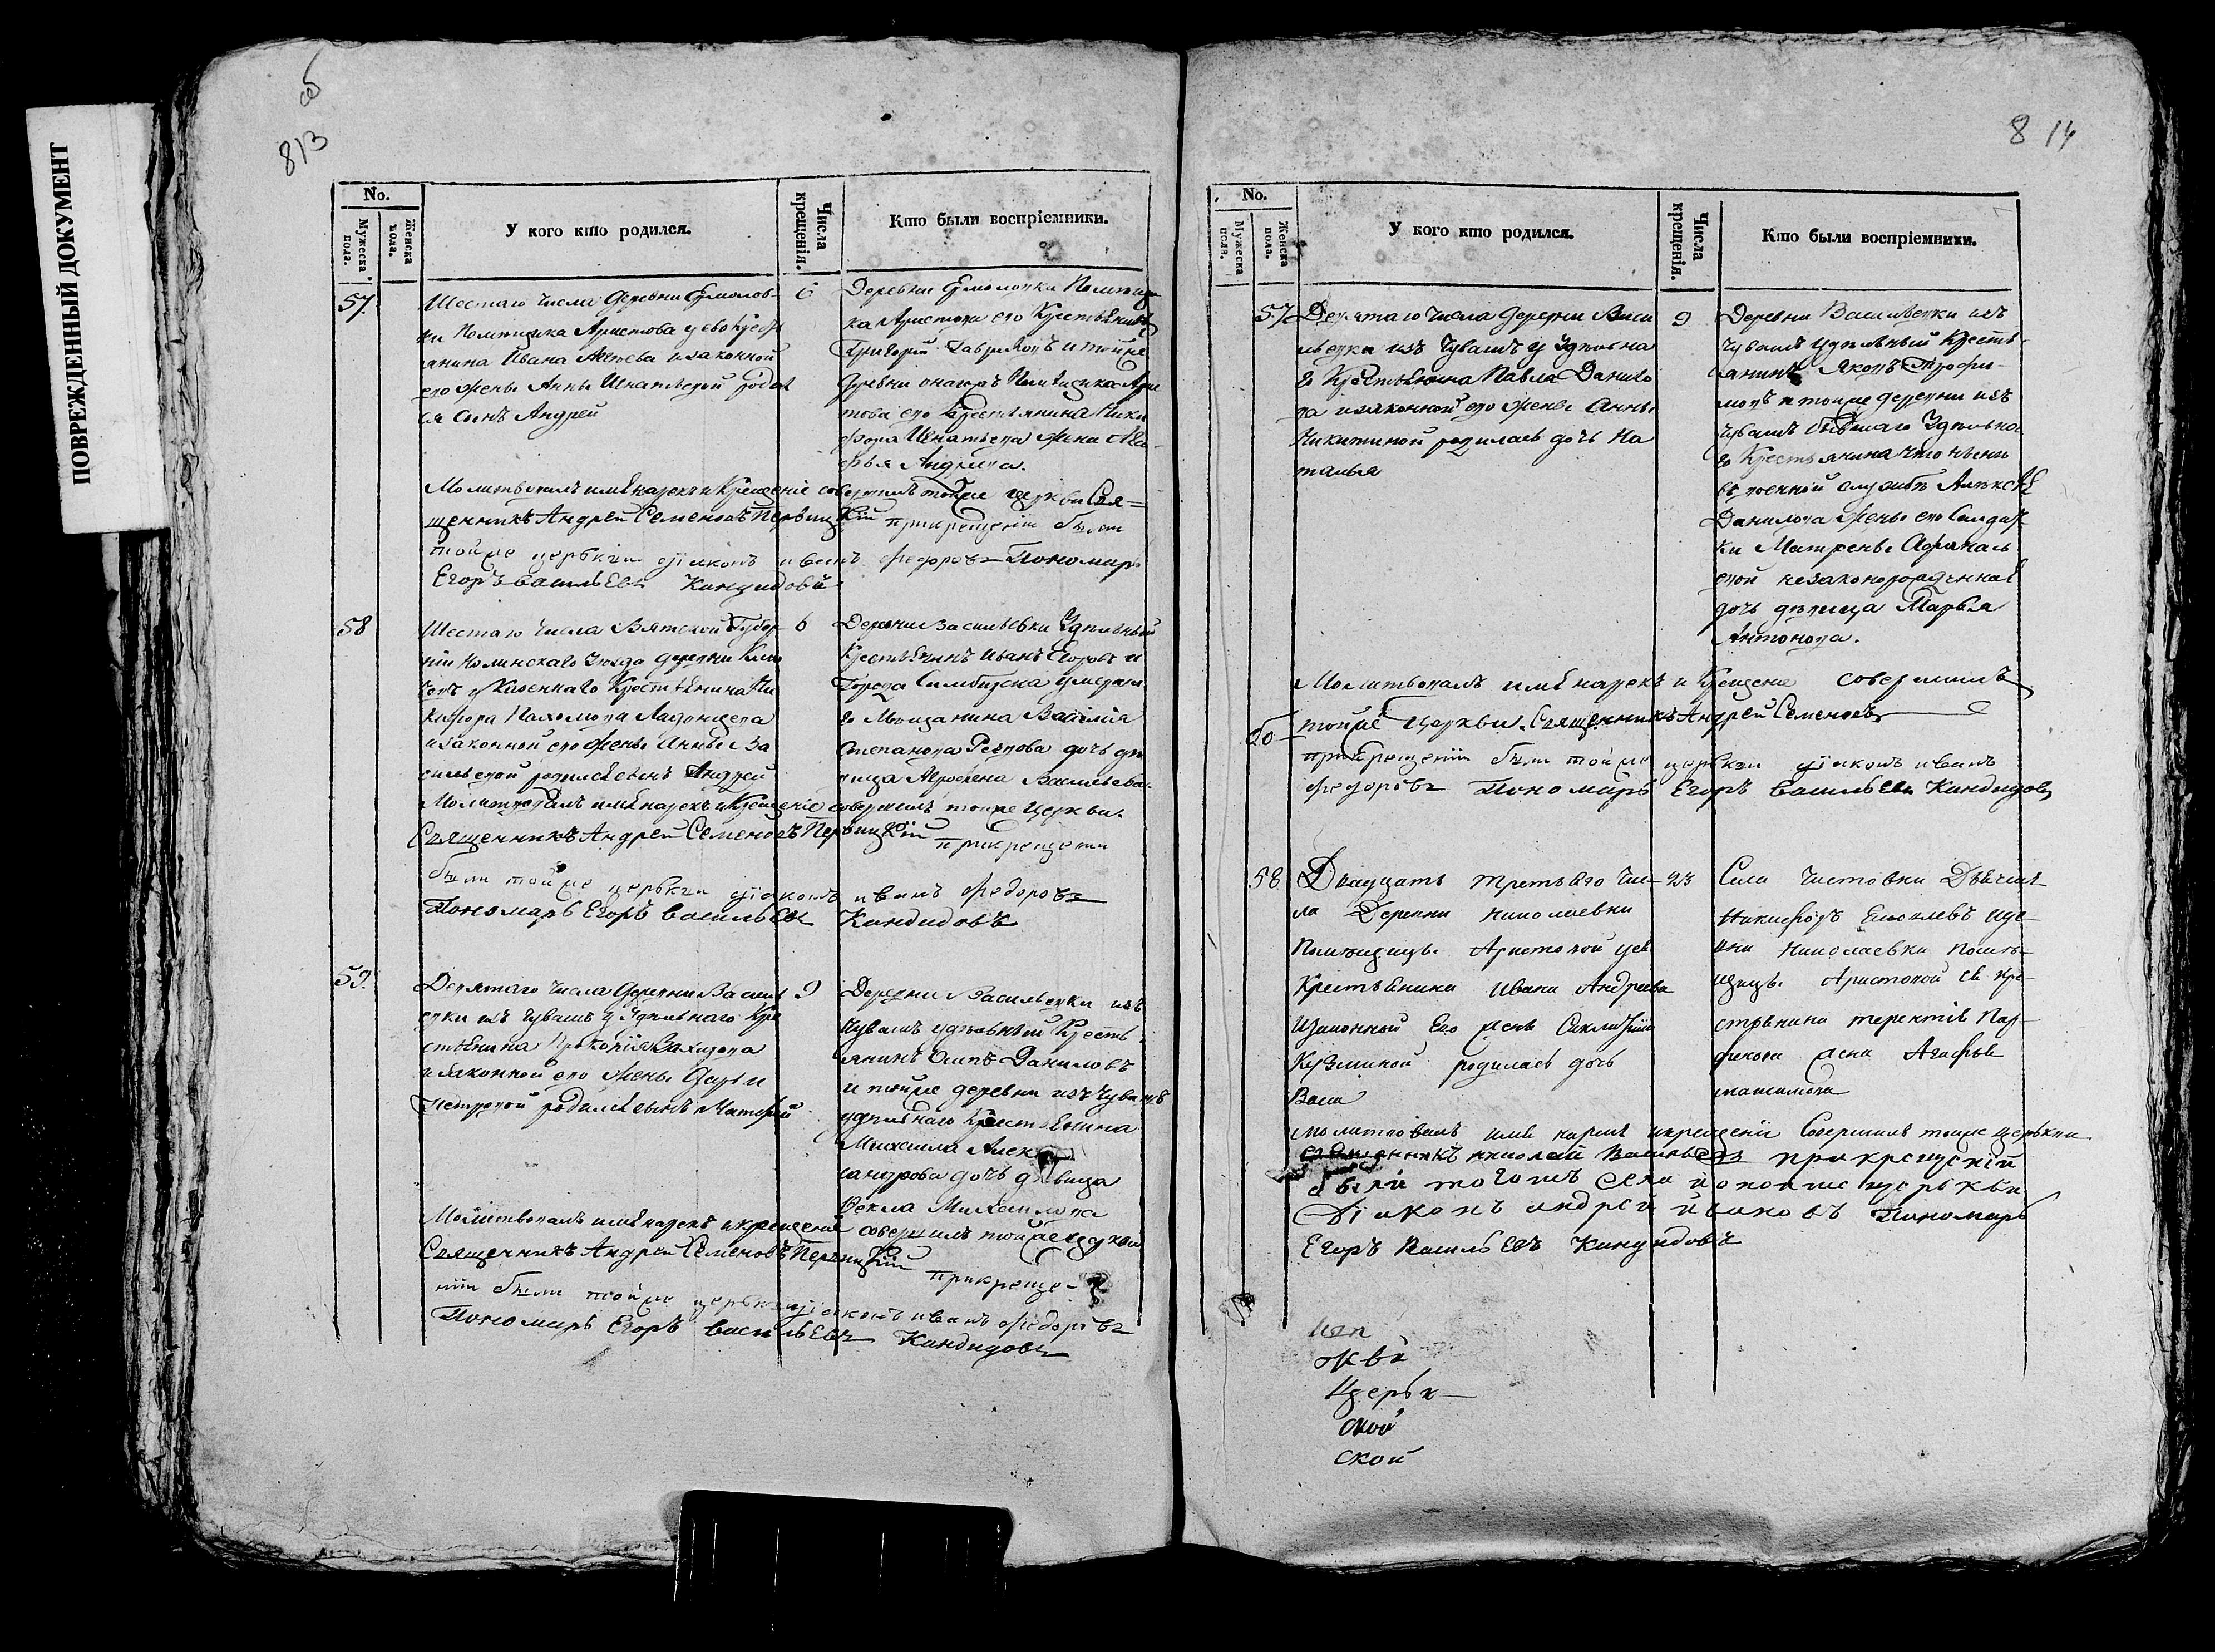 ПОВРЕЖДЕННЫЙ ДОКУМЕНТ
об
813
No.
Мужеска пола.
Женска пола.
У кого кто родился.
Числа крещенія.
Кто были воспріемники.
57.
Шестаго числа деревни Ермолов-
ки Помѣщика Аристова у ево крест
янина Ивана и законной
его жены Анны Игнатьевой родил
ся сынъ Андрей
6
Деревни Ермоловки Помѣщи
ка Аристова его Крестьянинъ
Григорій Гавриловъ и тойже
деревни онагожъ Помѣщика Арис
това его крестьянина Ники
фора Игнатьева жена
Андреева.
Молитвовалъ имя нарекъ и Крещеніе совершилъ тойже церкви Свя=
щенникъ Андрей Семеновъ Первицкій прикрещеніи были
тойже церькви діаконъ иванъ федоровъ Пономарь
Егоръ васильевъ Кандидовъ
58
Шестаго числа Вятской Губер
ніи Нолинскаго Уезда деревни
у Казеннаго Крестьянина Ни
кифора Пахомова
и законной его жены Анны Ва
сильевой родился сынъ Андрей
6
Деревни Васильевки Удѣльный
Крестьянинъ Иванъ Егоровъ и
Города Симбирска умерша
го Мѣщанина Василія
Степанова дочь дѣ
вица Васильева.
Молитвовалъ имя нарекъ и Крещеніе совершилъ тойже Церкви.
Священникъ Андрей Семеновъ Первицкій прикрещеніи
были тойже церькви діаконъ иванъ федоровъ
Пономарь Егоръ васильевъ Кандидовъ
59.
Девятаго числа деревни Василь
евки изъ чувашъ у Удѣльнаго Кре
стьянина Прокопія Захарова
и законной его жены Дарьи
Петровой родился сынъ Матфей
9
Деревни Васильевки изъ
Чувашъ удѣльный Кресть
янинъ Осипъ Даниловъ
и тойже деревни изъ чувашъ
удѣльнаго Крестьянина
Михаила Алек
сандрова дочь дѣвица
Фекла Михайлова
Молитвовалъ имя нарекъ и крещеніе совершилъ тойже церкви
Священникъ Андрей Семеновъ Первицкій прикреще-
ніи были тойже церькви діаконъ иванъ федоровъ
Пономарь Егоръ васильевъ Кандидовъ
814
No.
Мужеска пола.
Женска пола.
У кого кто родился.
Числа крещенія.
Кто были воспріемники.
57.
Девятаго числа деревни Васи
льевки изъ Чувашъ у Удѣльна
го Крестьянина Павла Данило
ва и законной его жены Анны
Никитиной родилась дочь На
талья
9
Деревни Васильевки изъ
Чувашъ Удѣльный Кресть-
янинъ Яковъ Трофи-
мовъ и тойже деревни изъ
чувашъ бывшаго Удѣльна
го Крестьянина что нынѣ
въ военной службѣ Алексѣя
Данилова жены его Солдат
ки Матрены Афанась
евой незаконорожденная
дочь дѣвица Марья
Антонова.
Молитвовалъ имя нарекъ и Крещеніе совершилъ
тойже Церкви. Священникъ Андрей Семеновъ
прикрещеніи были тойже церькви діаконъ иванъ
федоровъ Пономарь Егоръ васильевъ Кандидовъ
58
Двадцать третьяго чис-
ла Деревни Николаевки
Помѣщицы Аристовой у ея
Крестьянина Ивана Андреева
изаконной Его жены
Кузминой родилась дочь
Васа
23
Села Чистовки
Никифоръ и де-
вни Николаевки Помѣ-
щицы Аристовой ея кре-
стьянина терентія
жена Агафья
максимова
молитвовалъ имя нарекъ икрещеніе Совершилъ тойже церькви
священникъ николай Васильевъ прикрещеніи
были тогожъ Села церькви
Діаконъ андрей ивановъ Пономарь
Егоръ Васильевъ Кандидовъ
Церьк
ской